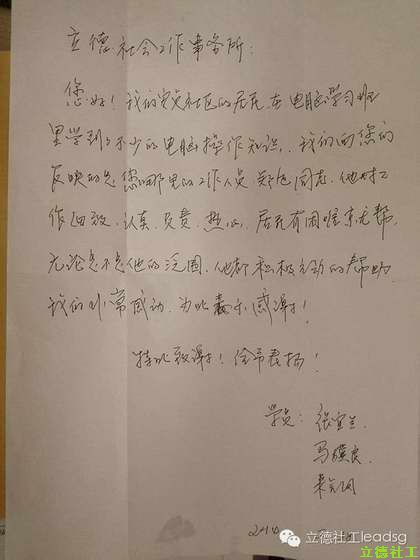 立德社会工作事务所:
您好!我们安贞社区的居民在电脑学习班
里学到了不少的电脑操作知识,我们向您的
反映的是您们那里的工作人员 同志,他对工
作细致、认真、负责、热心,居民有困难来无帮,
无论是不是他的范围,他都积极主动的帮助
我们非常感动,为此表示感谢!
特此致谢!给予表扬!
学员:张宜兰
马
2014
立德社工leadsg
立德社工